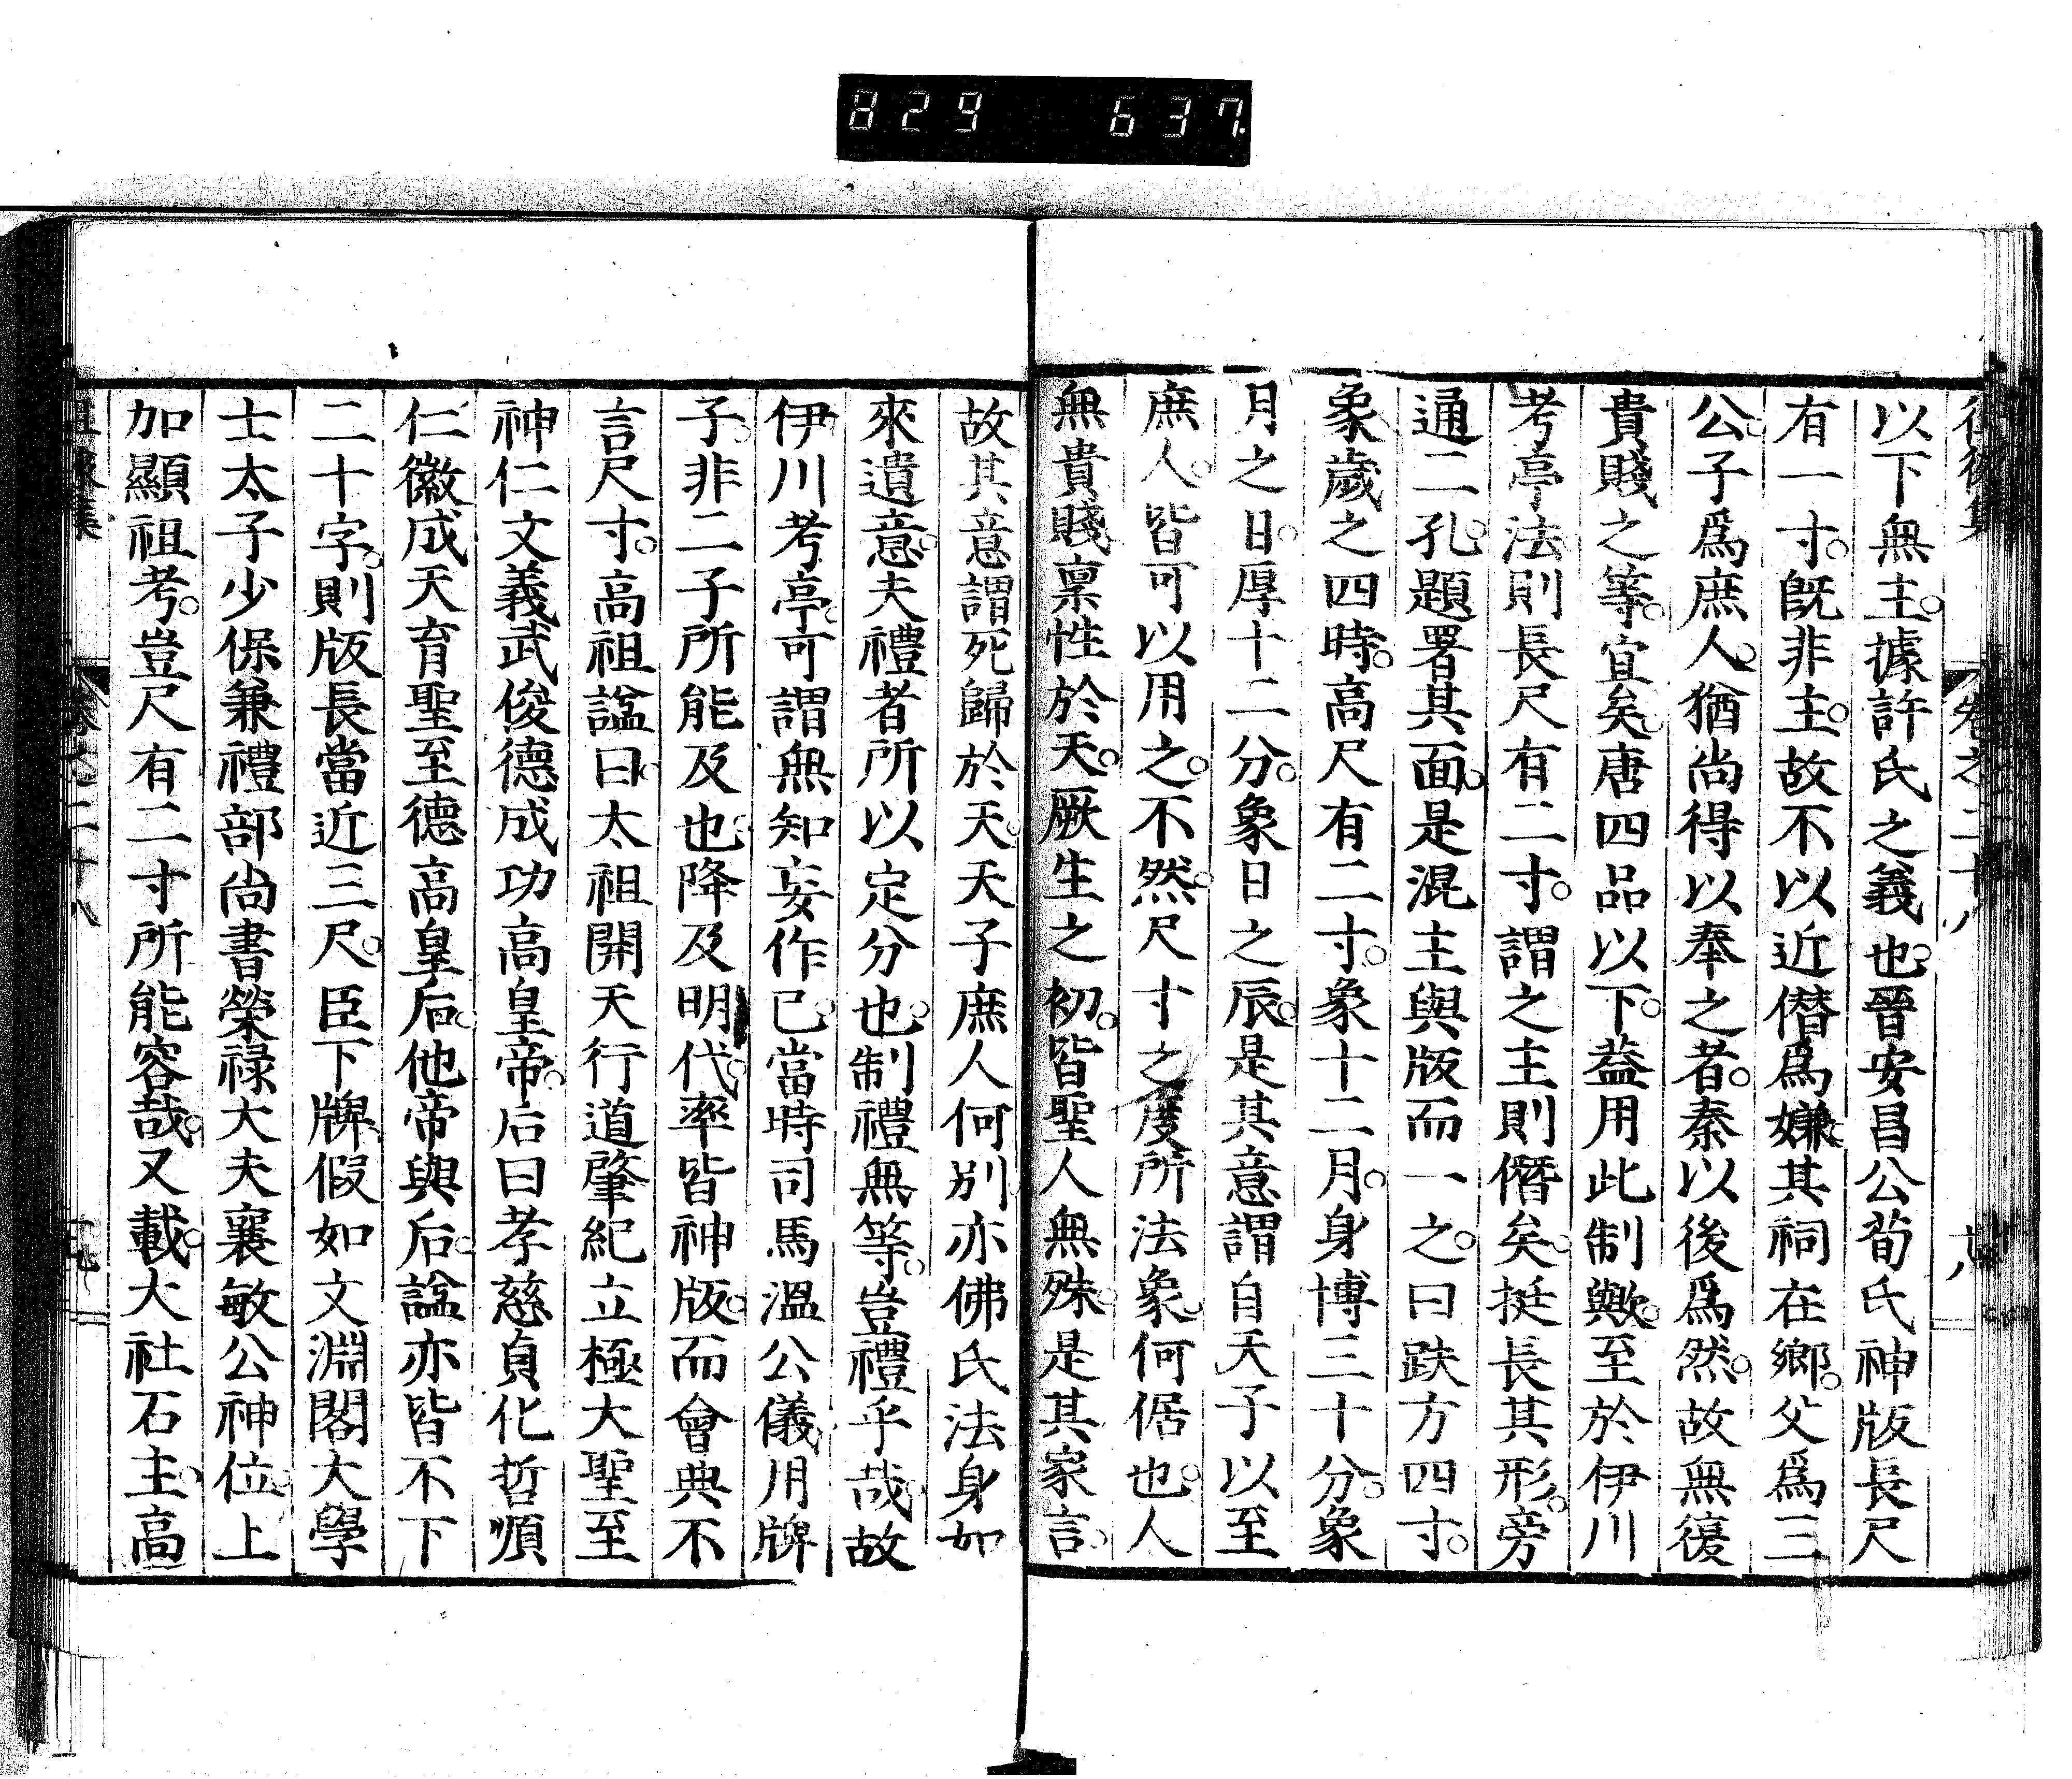 829 637
以下無主。據許氏之義也。晉安昌公荀氏神版長尺
有一寸。既非主。故不以近僣爲嫌。其祠在鄉。父爲三
公。子爲庶人。猶尚得以奉之者。秦以後爲然。故無復
貴賤之等。宜矣。唐四品以下。葢用此制歟。至於伊川
考亭法則長尺有二寸。謂之主則僭矣。挺長其形。旁
通二孔。題署其面。是混主與版而一之。曰趺方四寸。
象歲之四時。高尺有二寸。象十二月。身博三十分。象
月之日。厚十二分。象日之辰。是其意謂自天子以至
庶人。皆可以用之。不然。尺寸之度所法象。何倨也。人
無貴賤稟性於天。厥生之初。皆聖人無殊。是其家言。
故其意謂死歸於天。天子庶人何別。亦佛氏法身如
來遺意。夫禮者所以定分也。制禮無等。豈禮乎哉。故
伊川考亭。可謂無知妄作已。當時司馬溫公儀。用牌
子。非二子所能及也。降及明代。率皆神版。而會典不
言尺寸。高祖諡曰。太祖開天行道肇紀立極大聖至
神仁文義武俊德成功高皇帝。后曰孝慈貞化哲順
仁徽成天育聖至德高皇后。他帝與后。諡亦皆不下
二十字。則版長當近三尺。臣下牌。假如文淵閣大學
士太子少保兼禮部尚書榮祿大夫襄敏公神位。上
加顯祖考。豈尺有二寸所能容哉。又載。大社石主。高